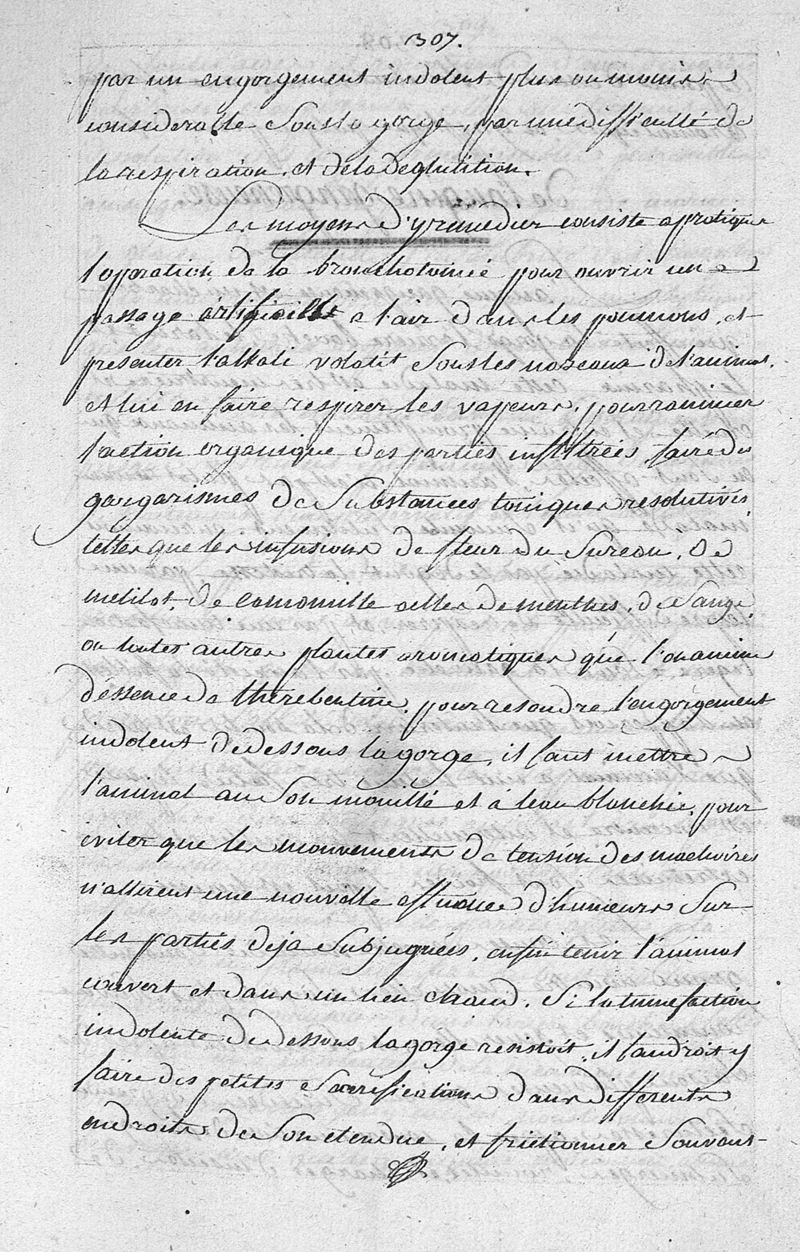 307.
par un engorgement indolent plus ou moins
considerable sous la gorge, par une difficulté de
la respiration, et de la deglutition.
Les moyens d'y remedier consiste a pratiquer
l'operation de la bronchotomie pour ouvrir un
passage artificielle a l'air dans les poumons, et
presenter l'alkali volatil sous les nazeaux de l'animal.
et lui en faire respirer les vapeurs, pour ranimer
l'action organique des parties infiltrées, faire des
gargarismes de substances toniques resolutives
telles que les infusions de fleur du sureau, de
melilot, de camomille celles de menthes, de sauge
ou toutes autres plantes aromatiques que l'on anime
d'essence de therebentine. pour resoudre l'engorgement
indolent de dessous la gorge, il faut mettre
l'animal au son mouillé et à l'eau blanchie, pour
eviter que les mouvements de tension des machoires
n'attirent une nouvelle affluence d'humeurs sur
les parties deja subjuguees, enfin tenir l'animal
couvert et dans un lieu chaud. Si la tumefaction
indolente de dessous la gorge resistoit, il faudroit y
faire des petites scarifications dans differents
endroits de son etendue, et frictionner souvant